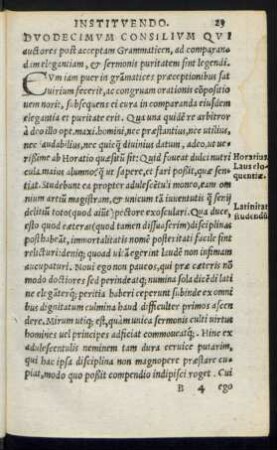 INSTITVENDO. 29
DVODECIMVM CONSILIVM QVI
auctores post acceptam Grammaticen, ad comparan
dam eleganciam, & sermonis puritatem sint legendi.
CVm iam puer in grāmatices præceptionibus sat
uirium fecerit, ac congruam orationis cōpositio
nem norit, subsequens ei cura in comparanda eiusdem
elegantia et puritate erit. Qua una quidē re arbitror
à deo illo opt. maxi. homini, nec præstantius, nec utilius,
nec laudabilius, nec quicq̄ diuinius datum, adeo, ut ue
rissime ab Horatio quæsitū sit: Quid foueat dulci nutri
cula maius alumno, q̄ ut sapere, et fari possit, quæ sen-
tiat. Studebunt ea propter adulescētuli moneo, eam om
nium artiū magistram, & unicum tā iuuentutis q̄ senij
delitiū totos (quod aiūt) pectore exosculari. Qua duce,
esto quod cæteras (quod tamen dissuaserim) disciplinas
posthabeāt, immortalitatis nomē posteritati facile sint
relicturi: deniq; quoad uixerint laudē non infimam
aucupaturi. Noui ego non paucos, qui præ cæteris nō
modo doctores sed perinde atq; numina fola ob dicēdi lati
ne elegātē q; peritia haberi ceperunt subinde ex omnibus
dignitatum culmina haud difficulter primos ascen
dere. Mirum utiq; est, quàm unica sermonis culti uirtus
homines uel principes adficiat commoueatq;. Hinc ex
adulescentulis neminem tam dura ceruice putarim,
qui hac ipsa disciplina non magnopere præstare cu-
piat, modo quo possit compendio indipisci roget. Cui
B 4 ego
Horatius
Laus elo
quentiæ.
Latinitati
studendū